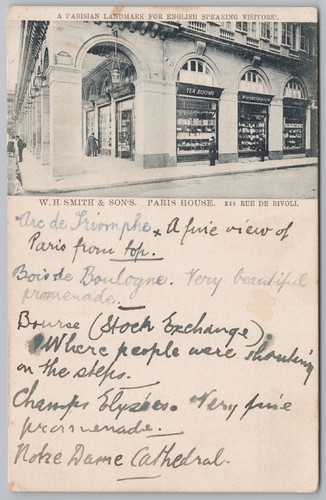 A PARISIAN LANDMARK FOR ENGLISH SPEAKING VISITORS.
TEA ROOMS
W. H. SMITH & SON'S. PARIS HOUSE. 248 RUE DE RIVOLI.
Arc de Triomphe. A fine view of
Paris from top.
Bois de Boulogne. Very beautiful
promenade.
Bourse (Stock Exchange)
Where people were shouting
on the steps.
Champs Elysées. Very fine
prommenade.
Notre Dame Cathedral.